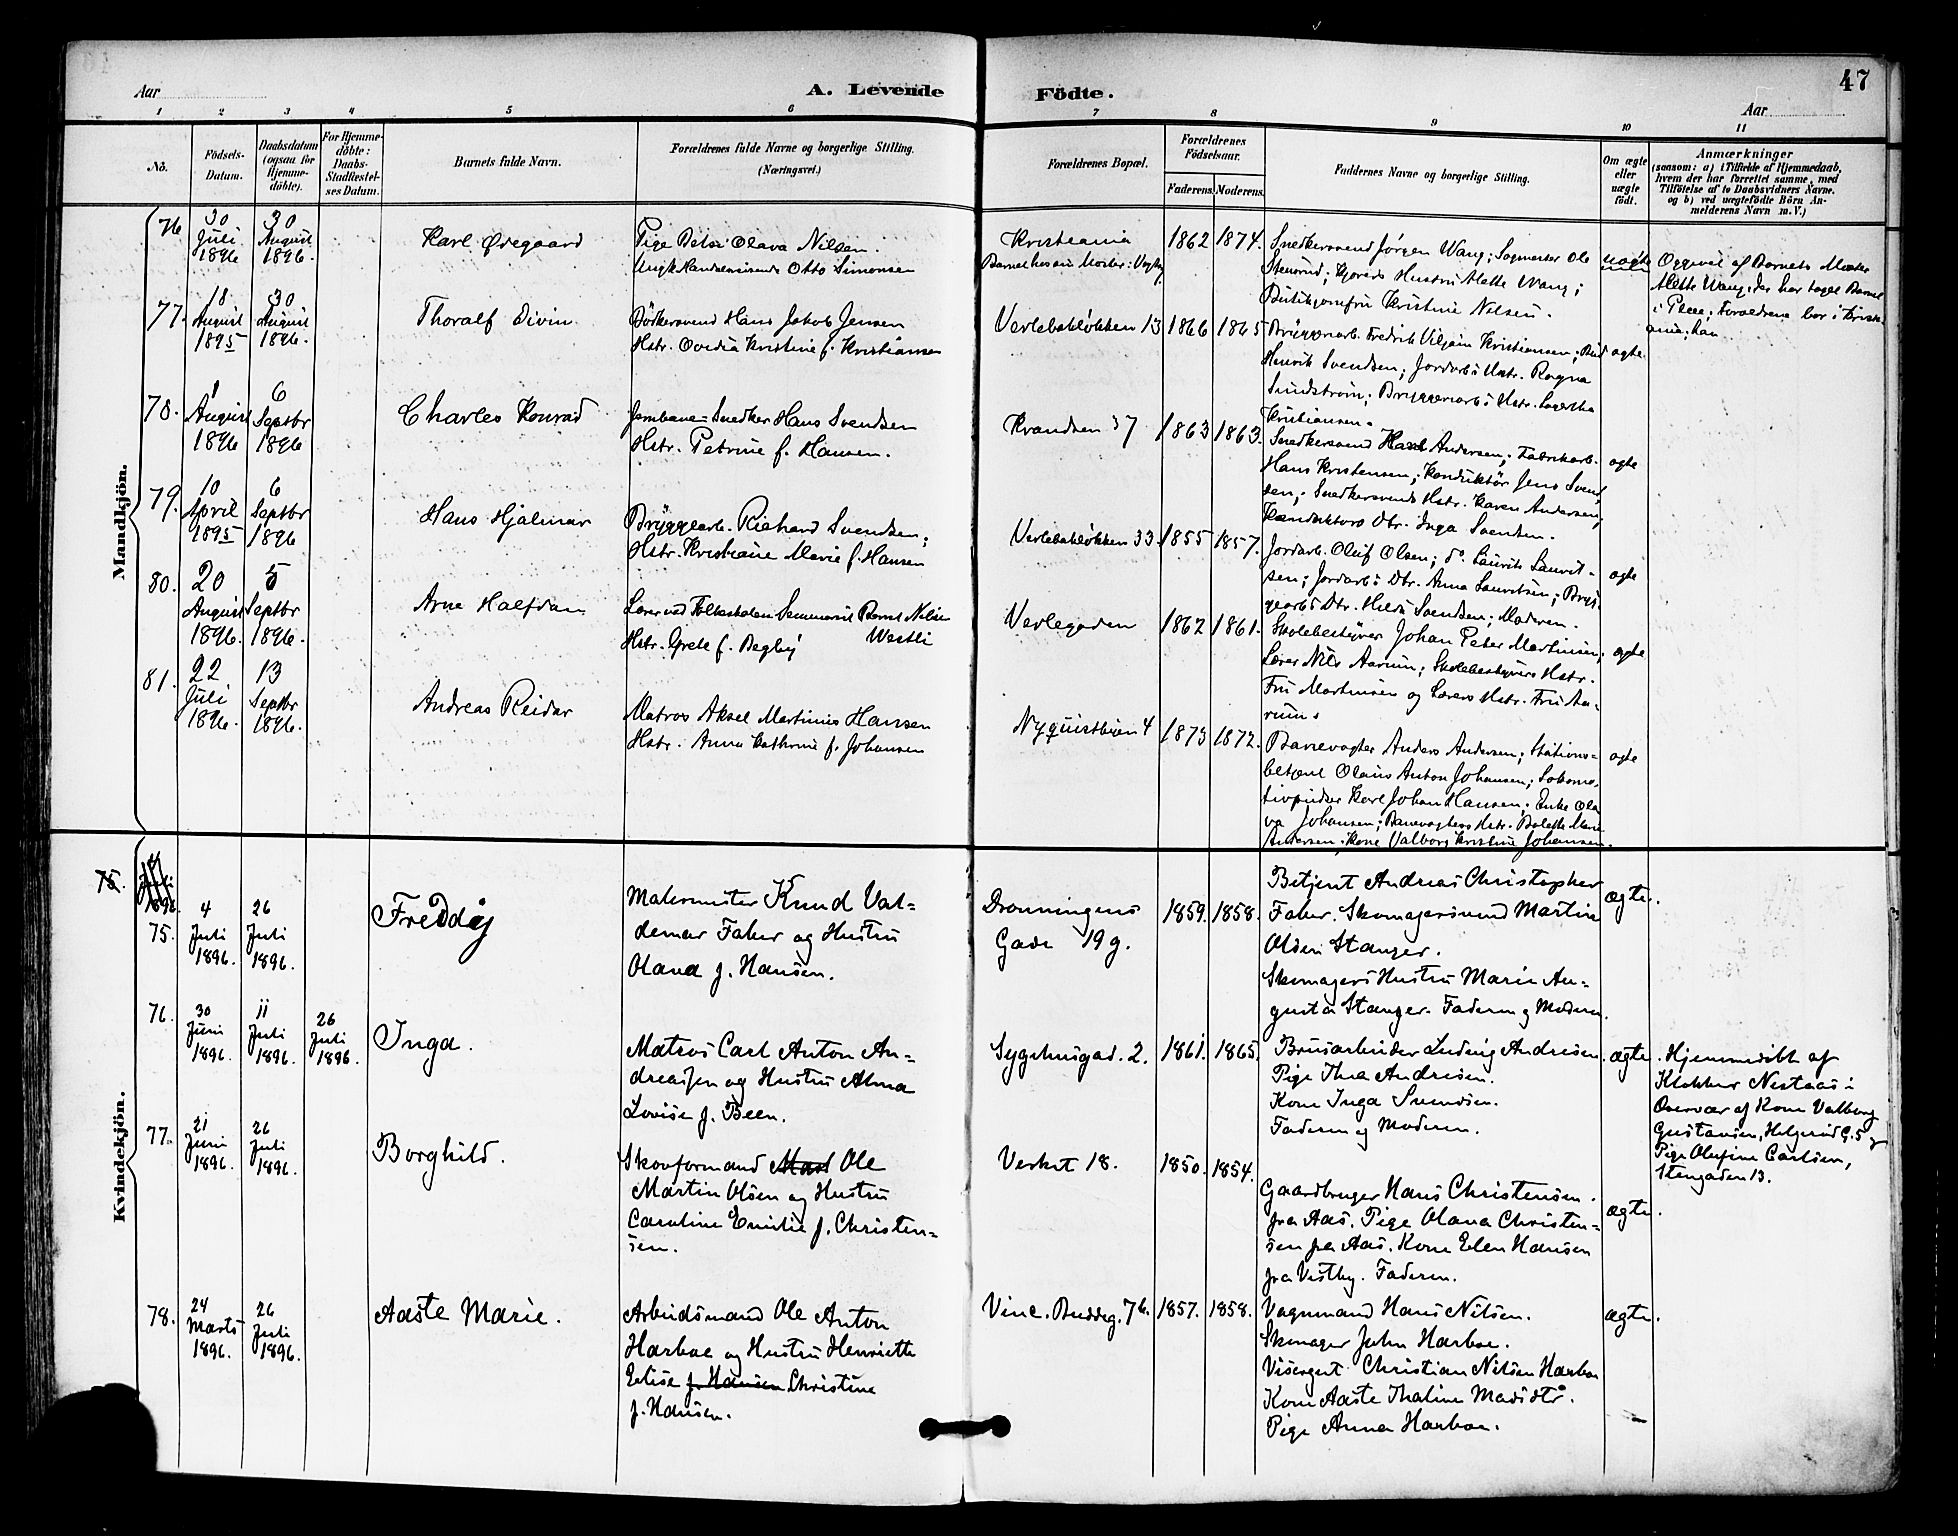 47
Aar
A. Levende
Födte.
Aar
1 2 3 4 5 6 7 8 9 10 11
No.
Födsels-
Datum.
Daabsdatum
(ogsaa for
Hjemme-
döbte).
For Hjemme-
döbte:
Daabs-
Stadfæstel-
ses Datum.
Barnets fulde Navn.
Forældrenes fulde Navne og borgerlige Stilling.
(Næringsvei.)
Forældrenes Bopæl.
Forældrenes
Födselsaar.
Faderens.
Moderens.
Faddernes Navne og borgerlige Stilling.
Om ægte
eller
uægte
födt.
Anmærkninger
(saasom: a) i Tilfælde af Hjemmedaab,
hvem der har forrettet samme, med
Tilföielse af to Daabsvidners Navne.
og b) ved uægtefödte Börn An-
melderens Navn m. V.)
Mandkjön.
76
30
Juli
1896
30
August
1896.
Karl Øvegaard
Pige Betsi Olava Nilsen.
Ungk Handelsreisende Otto Simonsen
Kristiania
1862 1874.
Snedkersvend Jørgen Wang; Sagmester Ole
Stensrud; Hustru Alette Wang;
Butikjomfru Kristine Nilsen.
uægte
Opgivet af Barnets Moster
Alette Wang, der har taget Barnet
i Pleie; Forældrene bor i Kristi-
ania,
77.
18
August
1895
30
August
1896.
Thoralf Eivin
Bödkersvend Hans Jakob Jensen
Hstr. Ovedia Kristine f. Kristiansen
Verlebakløkken 13
1866 1865
Bryggearb. Fredrik Viljam Kristiansen; Bud
Henrik Svendsen; Jordarb's Hstr. Ragna
Sundström; Bryggearb's Hstr. Lagertha
Kristiansen.
ægte
78.
1
August
1896
6
Septbr
1896
Charles Konrad
Jernbane-Snedker Hans Svendsen
Hstr. Petrine f. Hansen.
Krandsen 37
1863 1863.
Snedkersvend Karl Andersen; Fabrikarb.
Hans Kristensen; Konduktör Jens Svend-
sen; Snedkersvends Hstr. Karen Andersen;
Konduktørs Dtr. Inga Svendsen.
ægte
79.
10
April
1895
6
Septbr
1896
Hans Hjalmar
Bryggearb. Richard Svendsen;
Hstr. Kristiane Marie f. Hansen
Verlebakløkken 33.
1855 1857.
Jordarb. Oluf Olsen; do Laurits Laurit-
sen; Jordarb's Dtr. Anna Lauritsen; Bryg-
gearb's Dtr. Hilda Svendsen; Moderen.
ægte
80.
20
August
1896.
5
Septbr
1896.
Arne Halfdan
Lærer ved Folkeskolen Seminarist Bernt Nilsen
Westli
Hstr. Grete f. Begby
Verlegaden
1862 1861.
Skolebestyrer Johan Peter Martinsen;
Lærer Nils Aarum; Skolebestyrers Hstr.
Fru Martinsen og Lærers Hstr. Fru Aa-
rum.
ægte
81.
22
Juli
1896.
13
Septbr
1896.
Andreas Reidar
Matros Aksel Martinius Hansen
Hstr. Anna Kathrine f. Johansen
Nyquistbyen 4
1873 1872.
Banevogter Anders Andersen; Stations-
betjent Olaus Anton Johansen; Lokomo-
tivpudser Karl Johan Hansen; Enke Ola-
va Johansen; Banevogters Hstr. Bolette Marie
Andersen; Kone Valborg Kristine Johansen.
ægte
Kvindekjön.
75.
75.
4
Juli
1896.
26
Juli
1896.
Freddÿ
Malermester Knud Val-
demar Faber og Hustru
Olava f. Hansen.
Dronningens
Gade 19 g.
1859. 1858.
Betjent Andreas Christopher
Faber. Skomagersvend Martin
Olsen Stanger.
Skomagers Hustru Marie Au-
gusta Stanger. Faderen og Moderen.
ægte.
76.
30
Juni
1896.
11
Juli
1896.
26
Juli
1896.
Inga.
Matros Carl Anton An-
dreassen og Hustru Alma
Lovise f. Been.
Sygehusgad. 2.
1861. 1865.
Brusarbeider Ludvig Andresen.
Pige Thea Andresen.
Kone Inga Svendsen.
Faderen og Moderen.
ægte.
Hjemmedöbt af
Klokker Nestaas i
Overvær af Kone Valborg
Gustavsen, Helgerød G. 5 og
Pige Olufine Carlsen,
Stengaden 13.
77.
21
Juni
1896.
26
Juli
1896.
Borghild.
Skovformand Ole
Martin Olsen og Hustru
Caroline Emilie f. Christen-
sen.
Verket 18.
1850. 1854.
Gaardbruger Hans Christensen.
fra Aas. Pige Olava Christen-
sen fra Aas. Kone Elen Hansen
fra Vestby. Faderen.
ægte.
78.
24
Marts
1896.
26
Juli
1896.
Aaste Marie.
Arbeidsmand Ole Anton
Harboe og Hustru Henriette
Elise f. Hansen Christine
f. Hansen.
Vinc. Buddeg. 76.
1857. 1858.
Vognmand Hans Nilsen.
Skomager John Harboe.
Visergut Christian Nilsen Harboe
Kone Aaste Thaline Madsdtr.
Pige Anna Harboe.
ægte.